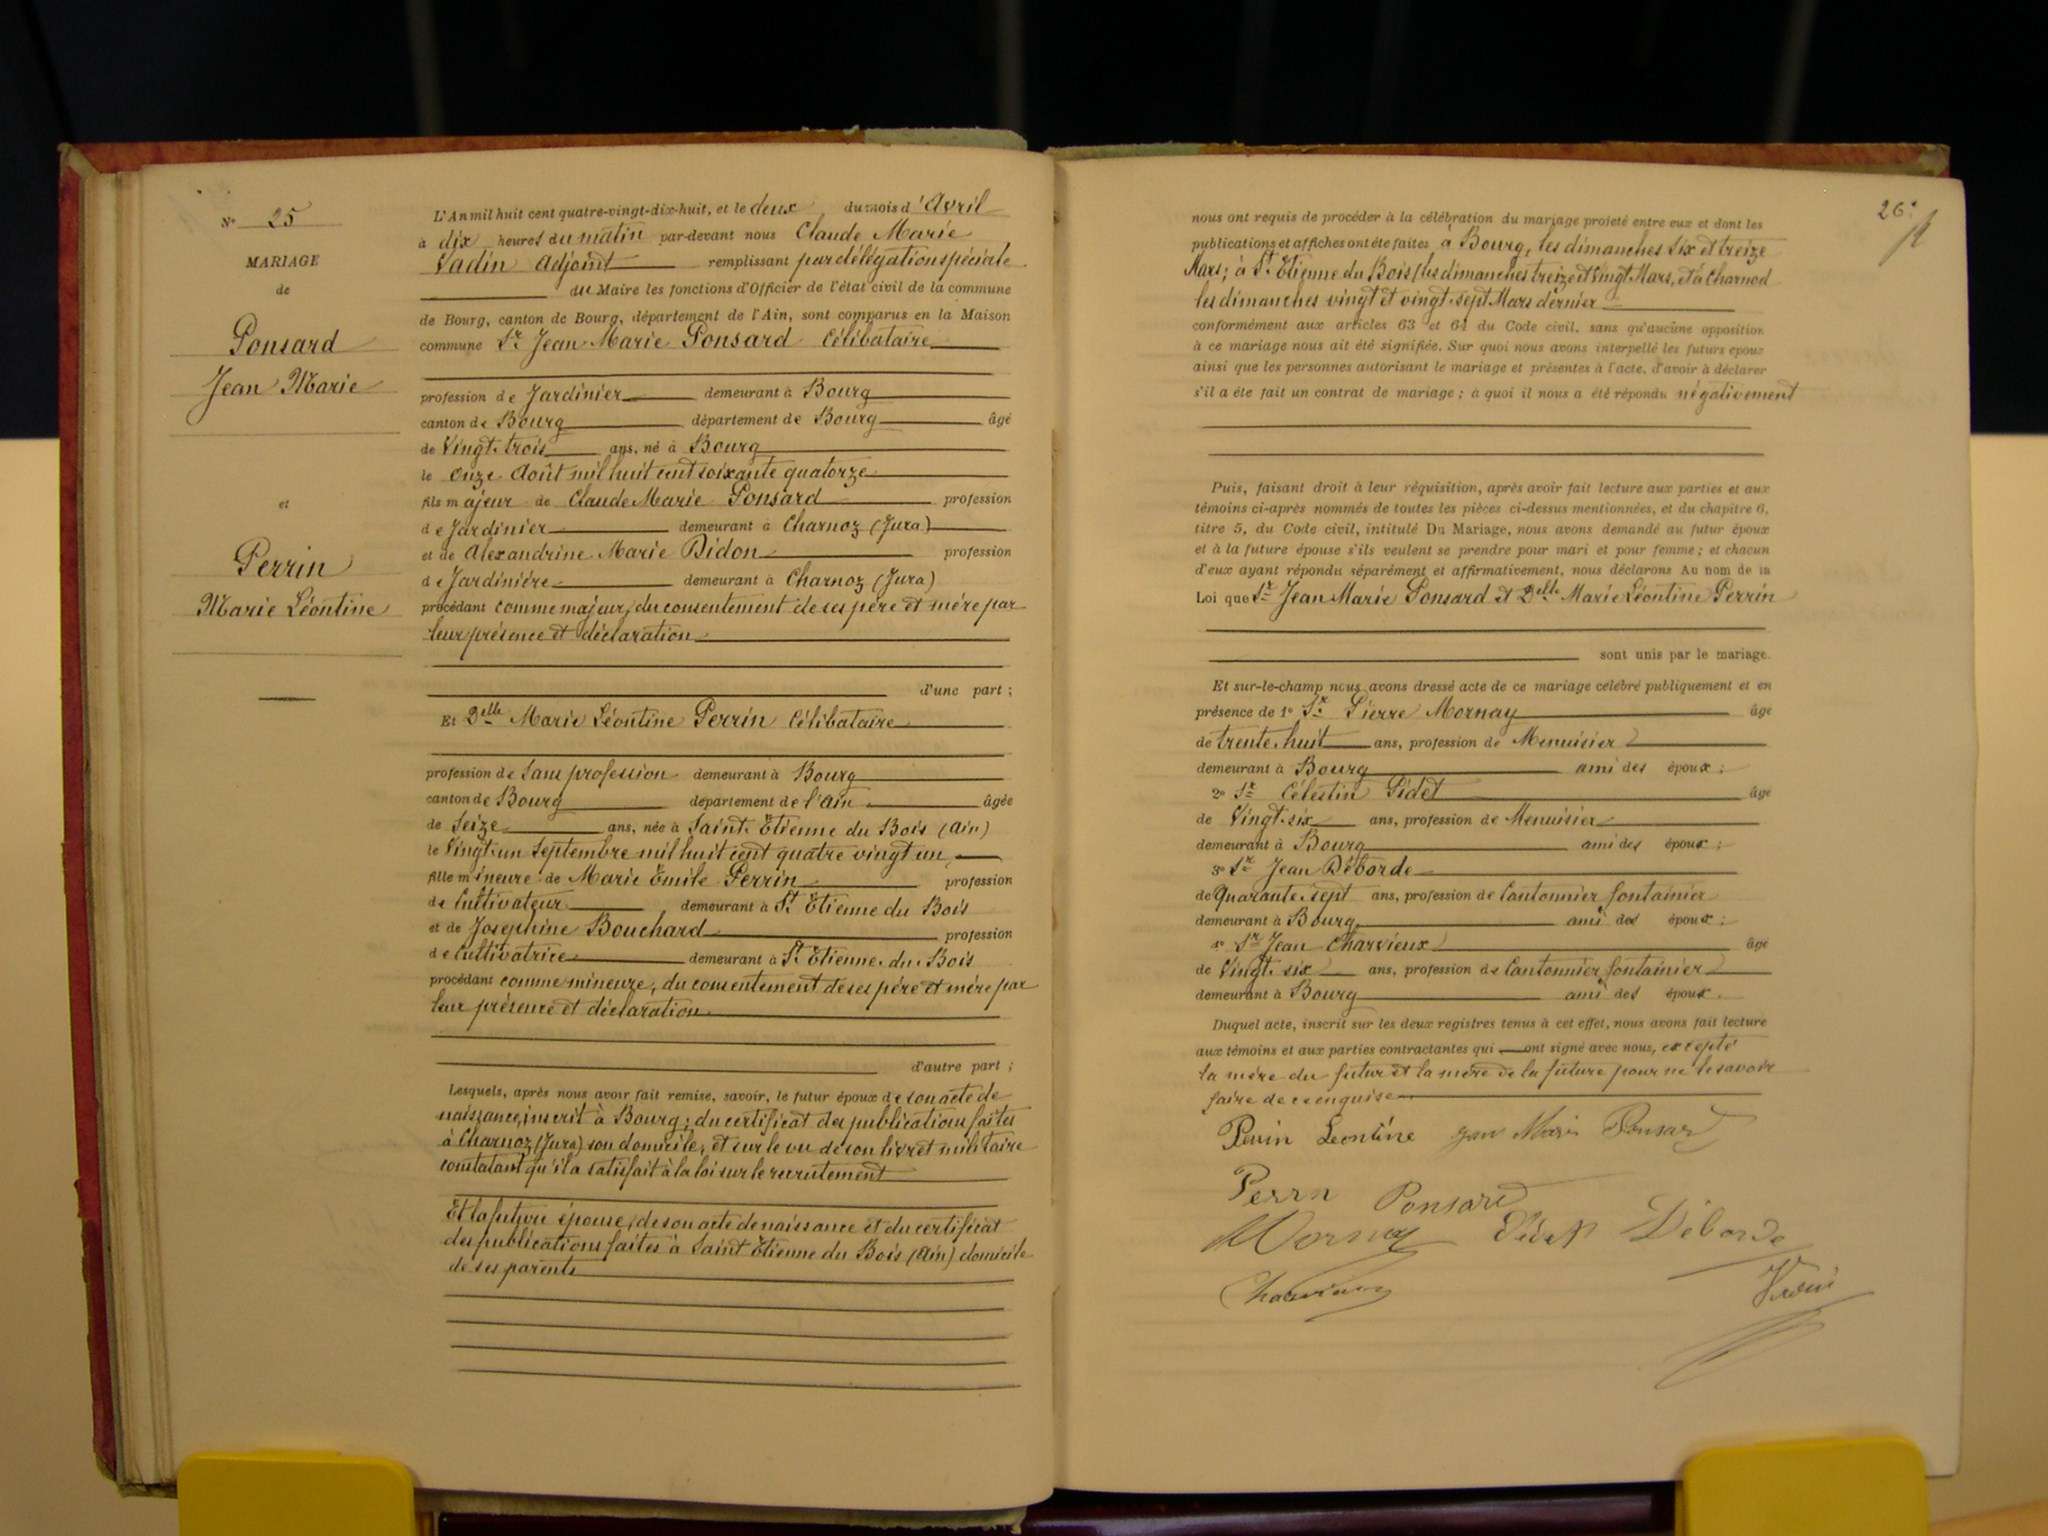 N° 25
MARIAGE
de
Ponsard
Jean Marie
et
Perrin
Marie Léontine
L'An mil huit cent quatre-vingt-dix-huit, et le deux du mois d'Avril
à dix heures du matin par-devant nous Claude Marie
Vadin Adjoint remplissant par délégation spéciale
du Maire les fonctions d'Officier de l'état civil de la commune
de Bourg, canton de Bourg, département de l'Ain, sont comparus en la Maison
commune Sr Jean Marie Ponsard Célibataire
profession de Jardinier demeurant à Bourg
canton de Bourg département de Bourg âgé
de Vingt-trois ans, né à Bourg
le onze Août mil huit cent soixante quatorze
fils majeur de Claude Marie Ponsard profession
de Jardinier demeurant à Charnoz (Jura)
et de Alexandrine Marie Didon profession
de Jardinière demeurant à Charnoz (Jura)
procédant comme majeur, du consentement de ses père et mère par
leur présence et déclaration
d'une part ;
Et Delle Marie Léontine Perrin Célibataire
profession de Sans profession demeurant à Bourg
canton de Bourg département de l'Ain âgée
de Seize ans, née à Saint-Etienne du Bois (Ain)
le Vingt-un Septembre mil huit cent quatre vingt un
fille mineure de Marie Emile Perrin profession
de Cultivateur demeurant à St Etienne du Bois
et de Joséphine Bouchard profession
de Cultivatrice demeurant à St Etienne du Bois
procédant comme mineure, du consentement de ses père et mère par
leur présence et déclaration
d'autre part ;
Lesquels, après nous avoir fait remise, savoir, le futur époux de son acte de
naissance, inscrit à Bourg ; du certificat des publications faites
à Charnoz (Jura) son domicile, et sur le vu de son livret militaire
constatant qu'il a satisfait à la loi sur le recrutement
Et la future épouse, de son acte de naissance et du certificat
des publications faites à Saint Etienne du Bois (Ain) domicile
de ses parents
26
nous ont requis de procéder à la célébration du mariage projeté entre eux et dont les
publications et affiches ont été faites à Bourg, les dimanches six et treize
Mars ; à St Etienne du Bois les dimanches treize et vingt Mars, et à Charnod
les dimanches vingt et vingt-sept Mars dernier
conformément aux articles 63 et 64 du Code civil, sans qu'aucune opposition
à ce mariage nous ait été signifiée. Sur quoi nous avons interpellé les futurs époux
ainsi que les personnes autorisant le mariage et présentes à l'acte, d'avoir à déclarer
s'il a été fait un contrat de mariage ; à quoi il nous a été répondu négativement
Puis, faisant droit à leur réquisition, après avoir fait lecture aux parties et aux
témoins ci-après nommés de toutes les pièces ci-dessus mentionnées, et du chapitre 6,
titre 5, du Code civil, intitulé Du Mariage, nous avons demandé au futur époux
et à la future épouse s'ils veulent se prendre pour mari et pour femme ; et chacun
d'eux ayant répondu séparément et affirmativement, nous déclarons Au nom de la
Loi que Sr Jean Marie Ponsard et Delle Marie Léontine Perrin
sont unis par le mariage.
Et sur-le-champ nous avons dressé acte de ce mariage célébré publiquement et en
présence de 1° Sr Pierre Mornay âgé
de trente-huit ans, profession de Menuisier
demeurant à Bourg ami des époux ;
2° Sr Célestin Pidet âgé
de Vingt-six ans, profession de Menuisier
demeurant à Bourg ami des époux ;
3° Sr Jean Déborde
de Quarante-sept ans, profession de Cantonnier fontainier
demeurant à Bourg ami des époux ;
4° Sr Jean Charvieux âgé
de Vingt-six ans, profession de Cantonnier fontainier
demeurant à Bourg ami des époux.
Duquel acte, inscrit sur les deux registres tenus à cet effet, nous avons fait lecture
aux témoins et aux parties contractantes qui ont signé avec nous, excepté
la mère du futur et la mère de la future pour ne le savoir
faire de ce enquise
Perrin Leontine Jean Marie Ponsard
Perrin Ponsard
Mornay Pidet Déborde
Charvieux Vadin